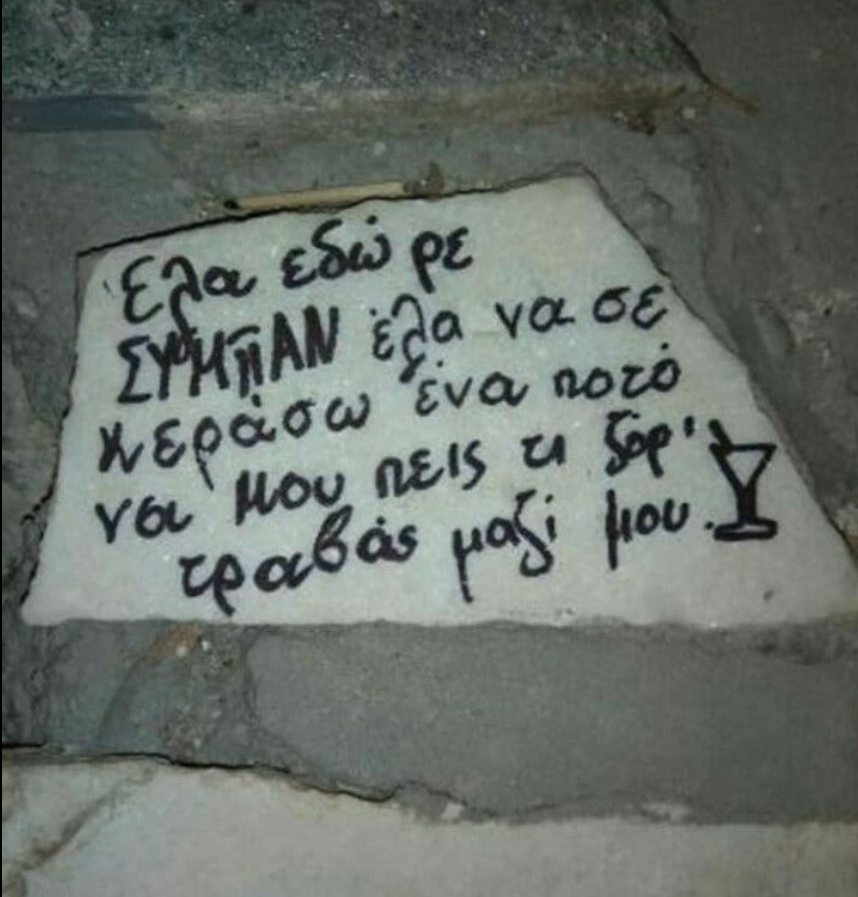 Έλα εδώ ρε
ΣΥΜΠΑΝ έλα να σε
κεράσω ένα ποτό
να μου πεις τι ζόρ'
τραβάς μαζί μου.